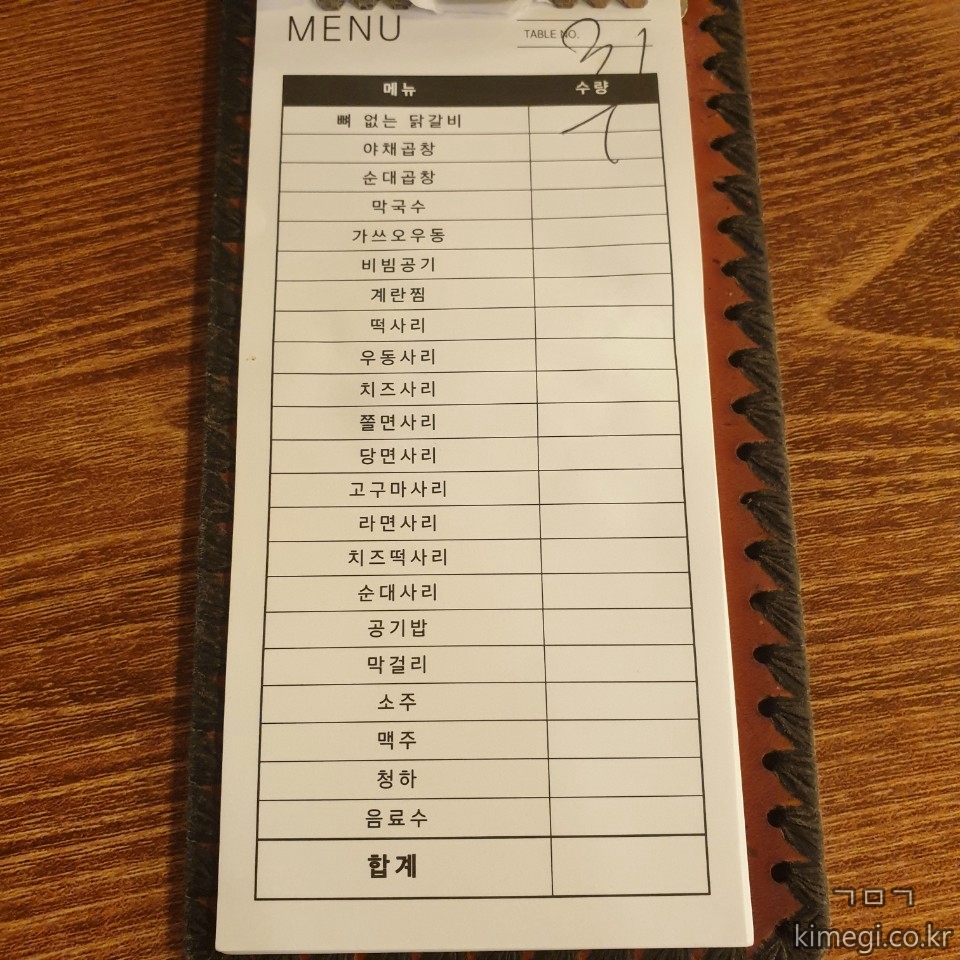 MENU
TABLE NO.
메뉴 수량
뼈 없는 닭갈비
야채곱창
순대곱창
막국수
가쓰오우동
비빔공기
계란찜
떡사리
우동사리
치즈사리
쫄면사리
당면사리
고구마사리
라면사리
치즈떡사리
순대사리
공기밥
막걸리
소주
맥주
청하
음료수
합계
ㄱㅁㄱ
kimegi.co.kr